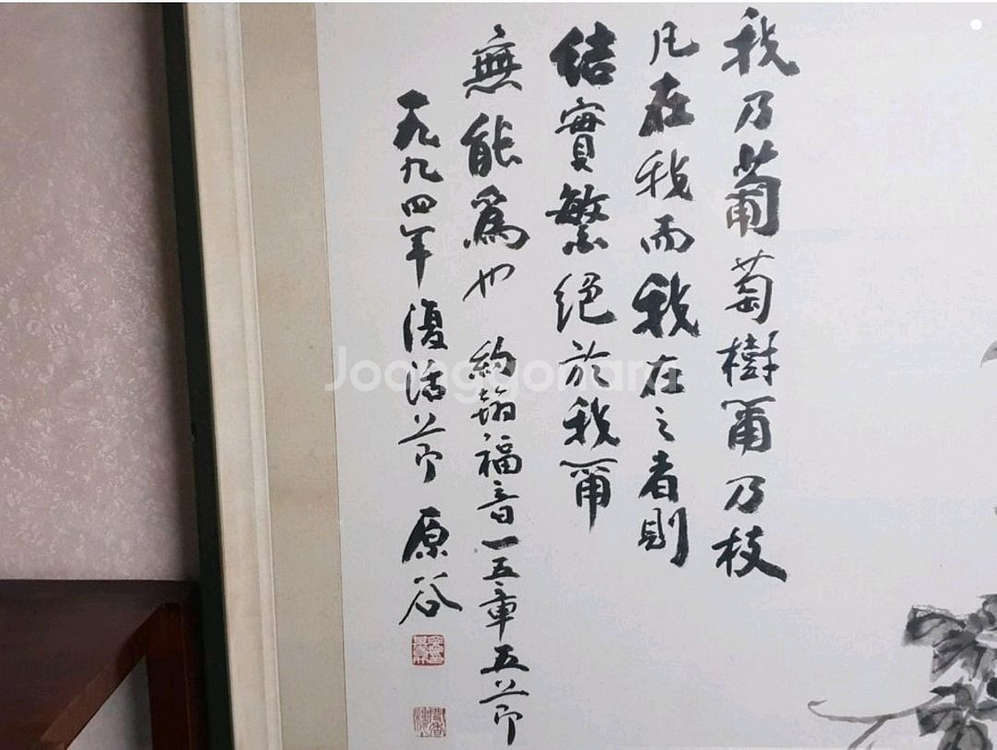 我乃葡萄樹爾乃枝
凡在我而我在之者則
結實繁絕於我爾
無能爲也 約翰福音一五章五節
一九九四年復活節 原谷
Joonggonara